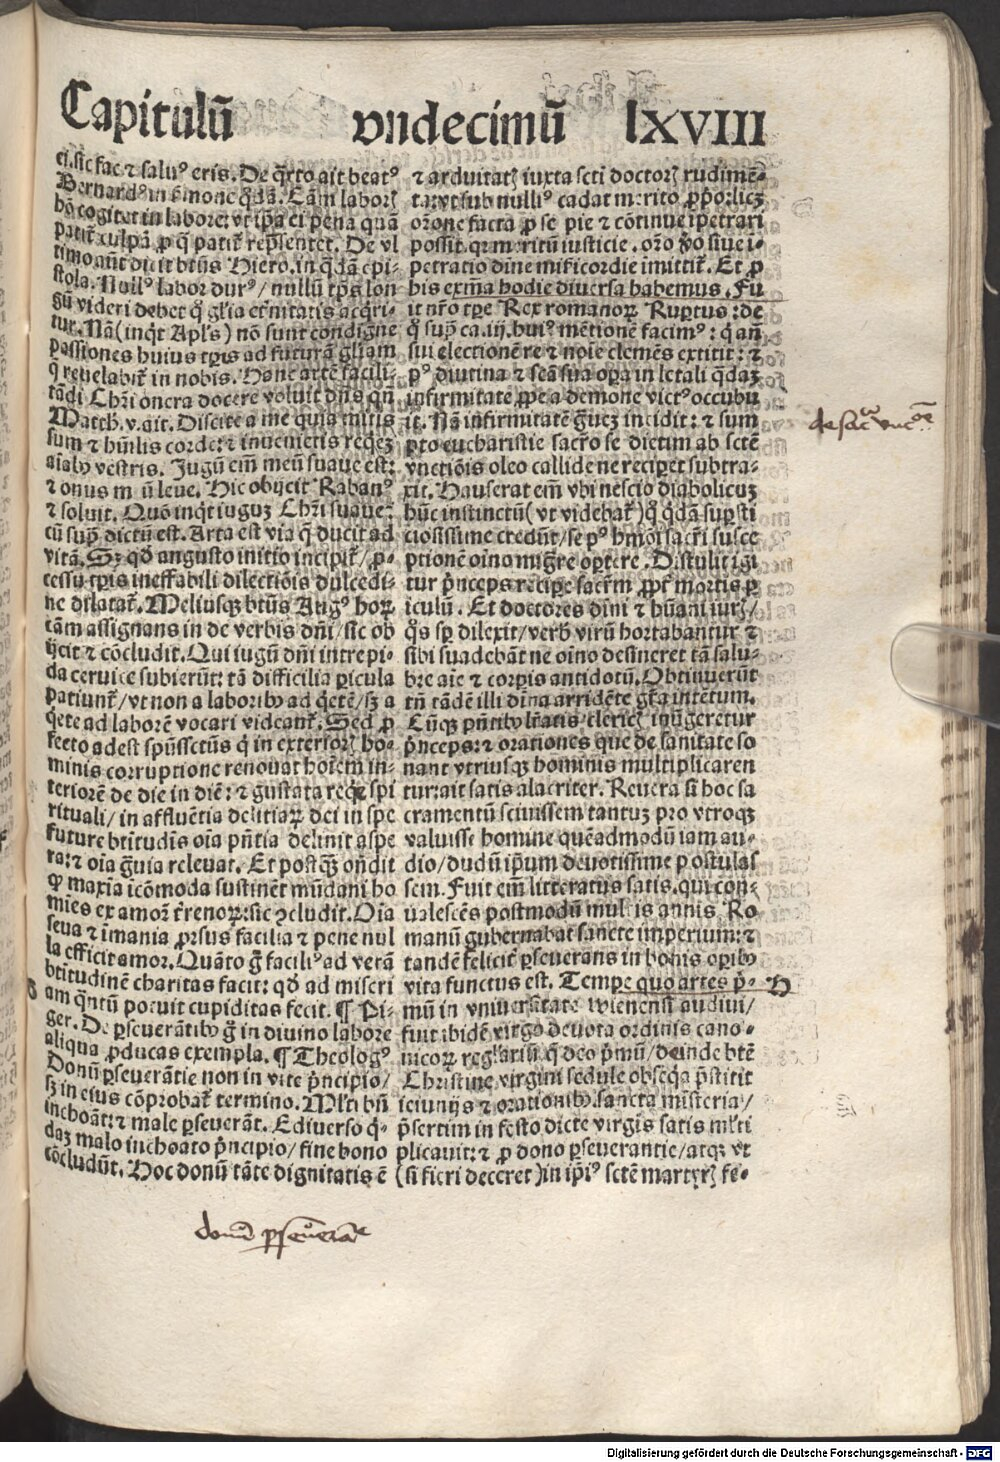 Capitulū vndecimū lXVIII
ei.sic fac ⁊ saluꝰ eris. De q̄rto ait beatꝰ
Bernardꝰ in ẜmone q̇dā. Eām laborꝭ
bñ cogitet in labore: vt ip̄a ei pena quā
patit᷑ culpā ꝓ q̄ patit᷑ rep̄sentet. De vl
timo aūt dicit btūs Hiero. in q̄dā epi-
stola. Nullꝰ labor durꝰ / nullū tp̄s lon
gū videri debet q̊ gl̄ia et̄nitatis acq̇ri-
tur. Nā (inq̇t Apl̄s) nō sunt condigne
passiones huius tp̄ris ad futurā gl̄iam
q̄ reuelabit᷑ in nobis. Hanc artē facili-
tādi Chr̄i onera docere voluit dn̄s qn̄
Matth.v.ait. Discite a me quia mitis
sum ⁊ hūilis corde: ⁊ inuenietis reqeꝫ
aīabꝰ vestris. Jugū em̄ meū suaue est:
⁊ onus m ū leue. Hic obijcit Rabanꝰ
⁊ soluit. Quō inq̇t iuguꝫ Chr̄i suaue:
cū sup̄ dictū est. Arta est via q̄ ducit ad
vitā. Sꝫ qd̄ angusto initio incipit᷑ / ꝓ-
cessu tp̄ris ineffabili dilectiōis dulcedi-
ne dilatat᷑. Meliusqꝫ btūs Augꝰ hoꝝ
tam assignans in de verbis dn̄i / sic ob
ijcit ⁊ cōcludit. Qui iugū dn̄i intrepi-
da ceruice subierūt: tā difficilia ꝑicula
patiunt᷑ / vt non a laboribꝰ ad q̇etē / sꝫ a
q̇ete ad laborē vocari videant᷑. Sed ꝓ
fecto adest spūssctūs q̇ in exteriorꝭ ho-
minis corruptione renouat hoīem in-
teriorē de die in diē: ⁊ gustata req̇e spi
rituali / in affluētia delitiaꝝ dei in spe
future btītudīs oīa pn̄tia delinit aspe
ra: ⁊ oīa g̊uia releuat. Et postqꝫ on̄dit
ꝙ maxīa icōmoda sustinēt mūdani ho
mīes ex amoꝛ t̄renoꝝ: sic ↄcludit. Oīa
seua ⁊ īmania ꝓrsus facilia ⁊ pene nul
la efficit amor. Quāto g̊ faciliꝰ ad verā
btitudinē charitas facit: qd̄ ad miseri
am q̄ntū potuit cupiditas fecit. ¶ Pi-
ger. De ꝑseuerātibꝰ g̊ in diuino labore
aliqua ꝓducas exempla. ¶ Theologꝰ.
Donū ꝑseuerātie non in vite p̄ncipio /
sꝫ in eius cōprobat᷑ termino. Ml̄ti bn̄
inchoāt: ⁊ male ꝑseuerāt. Ediuerso q̇-
daꝫ malo inchoato p̄ncipio / fine bono
cōcludūt. Hoc donū tāte dignitatis ē
⁊ arduitatꝭ iuxta scti doctorꝭ rudimē-
ta: vt sub nulliꝰ cadat merito ꝓpo: licꝫ
orōne facta ꝓ se pie ⁊ cōtinue īpetrari
possit. qꝛ meritū iusticie. orō ꝟo siue ī-
petratio dīne mīficordie īmittit᷑. Et ꝓ
his exm̄a hodie diuersa habemus. Fu
it nr̄o tp̄e Rex romanoꝝ Ruptus: de
q̊ sup̄ ca.iij.huiꝰ mētionē facimꝰ: q̇ an̄
sui electionē re ⁊ noīe clemēs extitit: ⁊
pꝰ diutina ⁊ scā sua oꝑa in letali q̄daꝫ
infirmitate ꝓpe a demone victꝰ occubu
it. Nā infirmitatē g̊uēꝫ incidit: ⁊ sum
pto eucharistie sacr̄o se dictim ab scte
vnctiōis oleo callide ne reciꝑet subtra-
xit. Hauserat em̄ vbi nescio diabolicuꝫ
hūc instinctū (vt videbat᷑) q̊ q̇dā suꝑsti
ciosissime credūt / se pꝰ hmōi sacr̄i susce
ptionē oīno migr̄e oꝑtere. Distulit igi
tur p̄nceps reciꝑe sacr̄m ꝓpt᷑ mortis ꝑ
iculū. Et doctores dīni ⁊ hūani iurꝭ /
q̊s sꝑ dilexit / verbꝭ virū hortabantur ⁊
sibi suadebāt ne oīno desineret tā salu-
bre aīe ⁊ corꝑis antidotū. Obtinuerūt
tn̄ tādē illi dīna arridēte gr̄a intētum.
Cūqꝫ pn̄tibꝰ lr̄atis clericꝭ inūgeretur
p̄nceps: ⁊ orationes que de sanitate so
nant vtriusqꝫ hominis multiplicaren
tur: ait satis alacriter. Reuera si hoc sa
cramentū sciuissem tantuꝫ pro vtroqꝫ
valuisse homine quēadmodū iam au-
dio / dudū ip̄um deuotissime postulas
sem. Fuit em̄ litteratus satis. qui con-
ualescēs postmodū mul is annis Ro
manū gubernabat sancte imperium: ⁊
tandē felicit᷑ ꝑseuerans in bonis oꝑibꝰ
vita functus est. Tempe quo artes p̄-
mū in vniuersitate wienensi audiui /
fuit ibidē virgo deuota ordinis cano-
nicoꝝ reglariū. q̄ deo p̄mū / deinde btē
Christine virgini sedule obseq̇a p̄stitit
ieiunijs ⁊ orationibꝰ. sancta misteria /
p̄sertim in festo dicte virgis satis ml̄ti
plicauit: ⁊ ꝓ dono ꝑseuerantie / atqꝫ vt
(si fieri deceret) in ip̄iꝰ scte martyrꝭ fe-
H